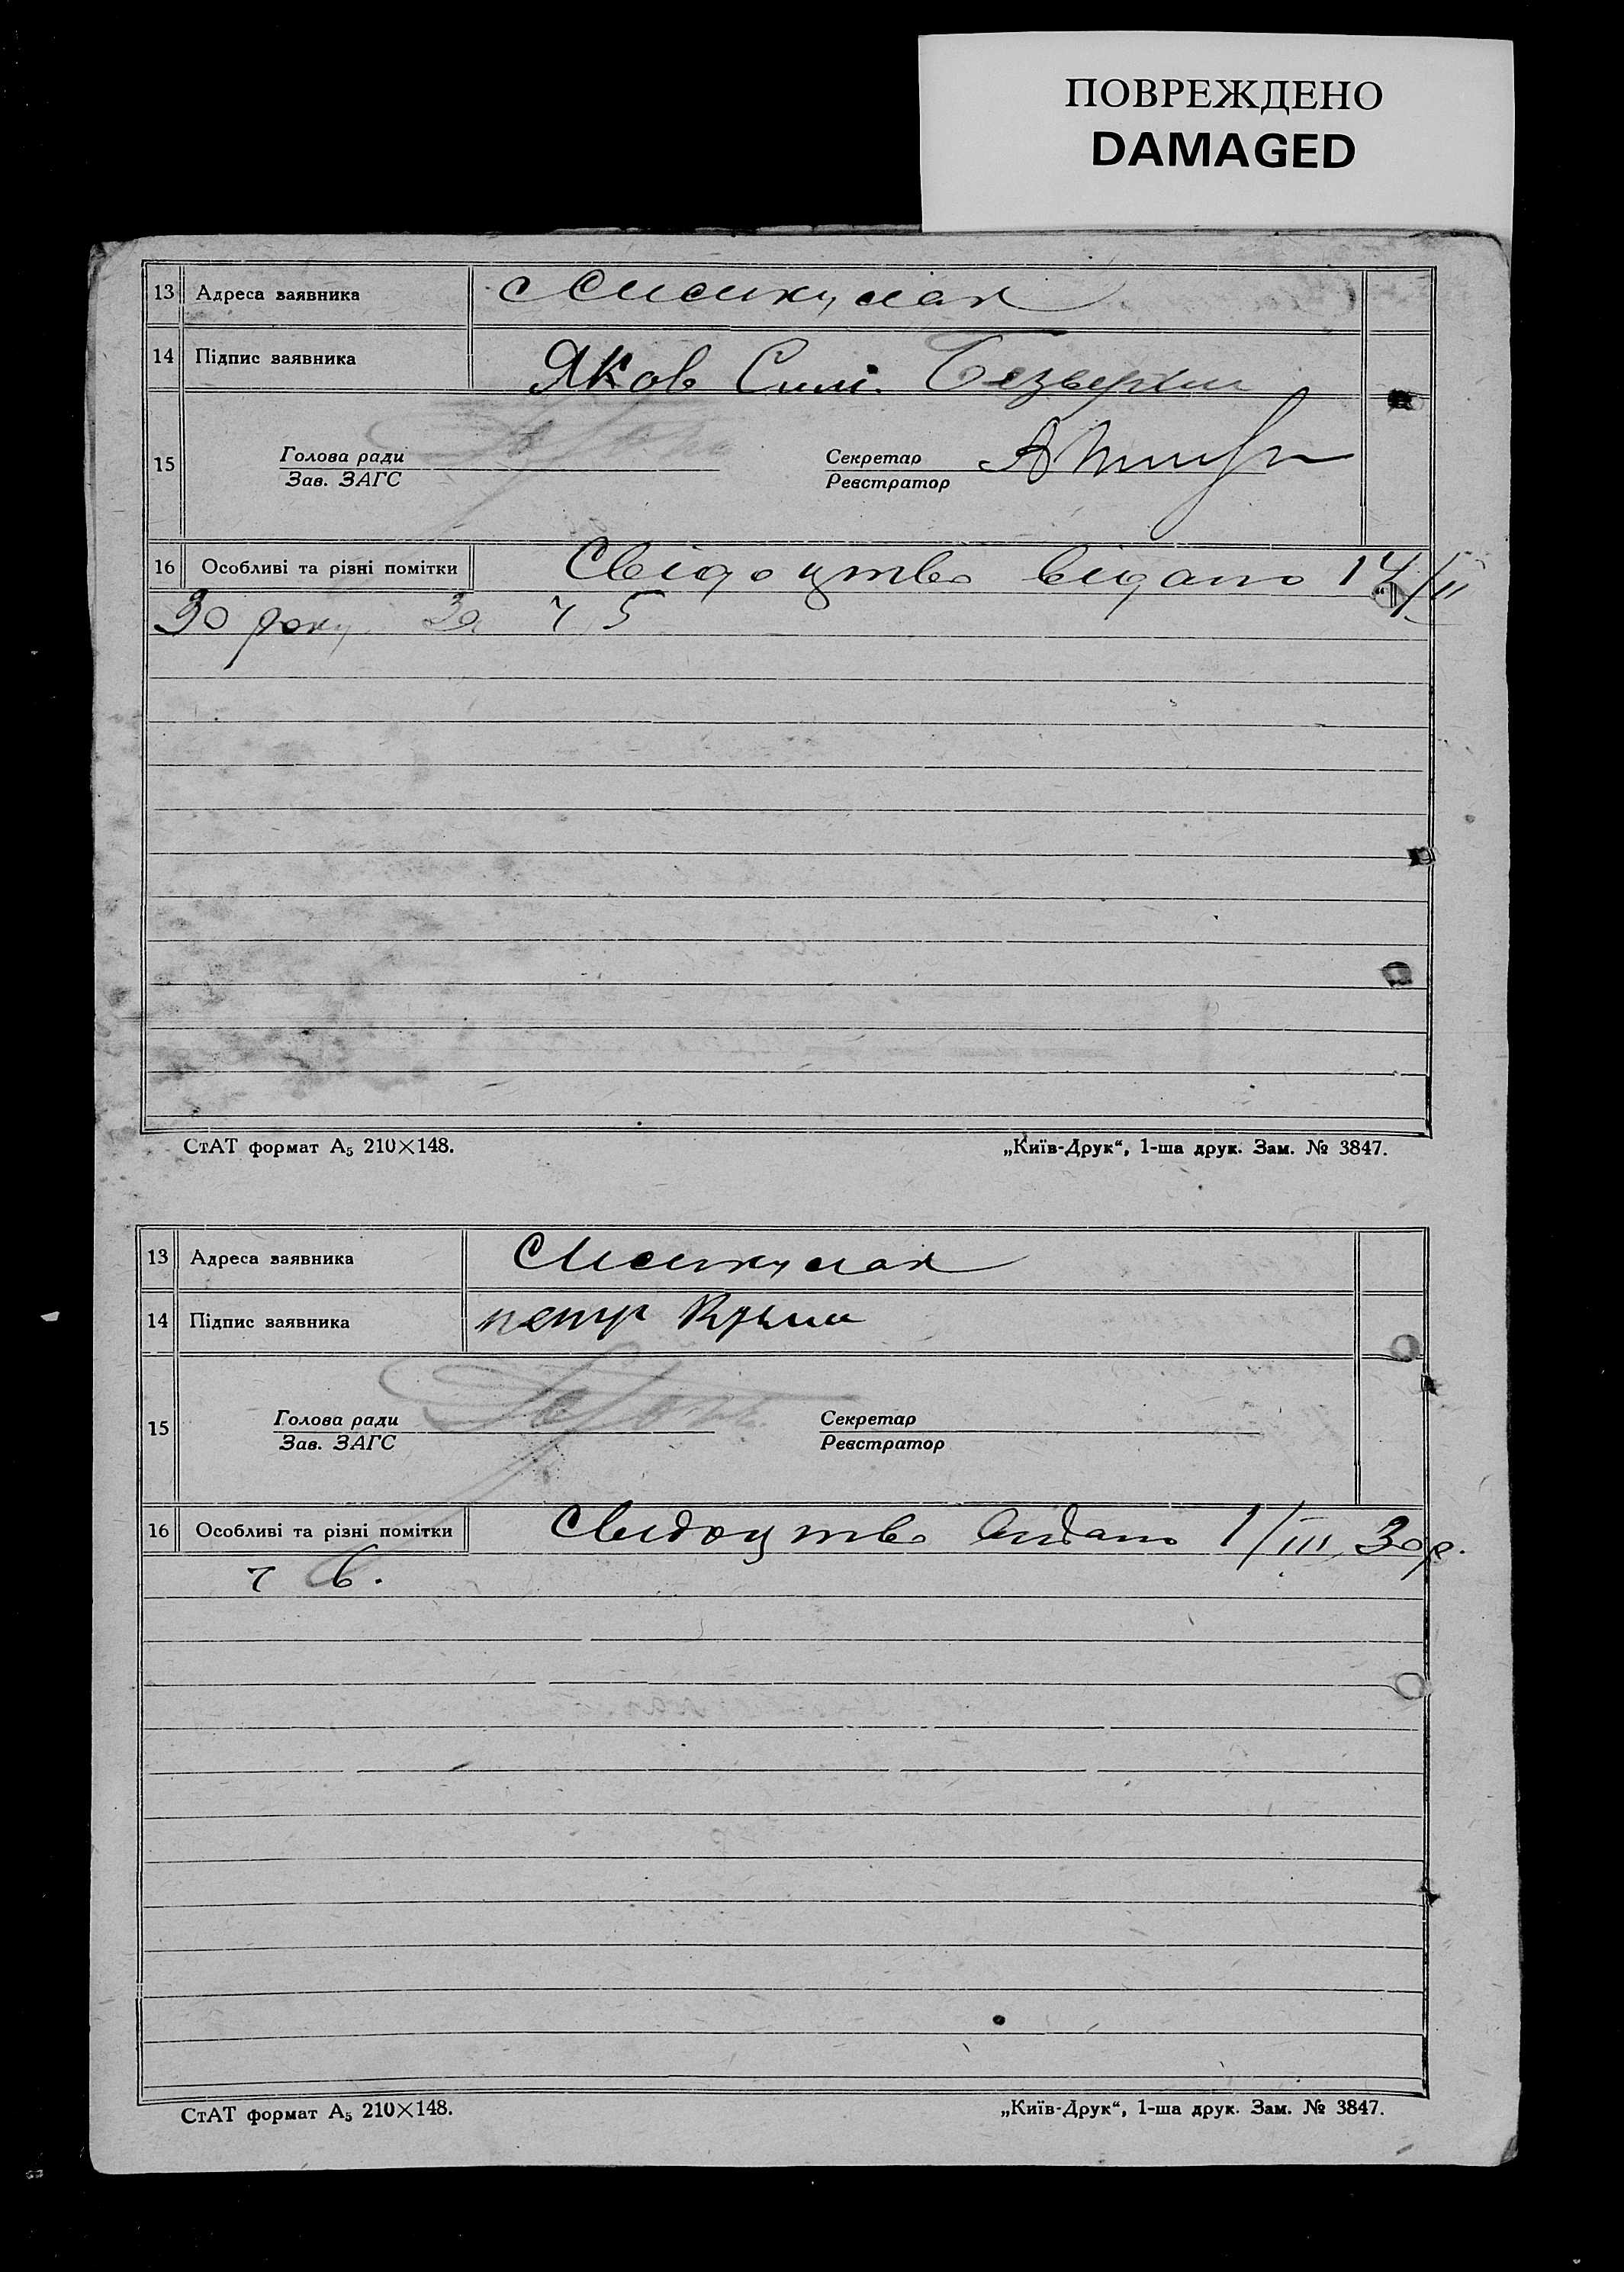 ПОВРЕЖДЕНО
DAMAGED
13 Адреса заявника
14 Підпис заявника Яков
15 Голова ради Секретар
Зав. ЗАГС Реєстратор
16 Особливі та різні помітки Свідоцтво видано 14/II
30 року за ч 5
СтАТ формат А₅ 210×148. „Київ-Друк“, 1-ша друк. Зам. № 3847.
13 Адреса заявника
14 Підпис заявника петр
15 Голова ради Секретар
Зав. ЗАГС Реєстратор
16 Особливі та різні помітки Свидоцтво видано 1/III 30 р.
ч 6.
СтАТ формат А₅ 210×148. „Київ-Друк“, 1-ша друк. Зам. № 3847.